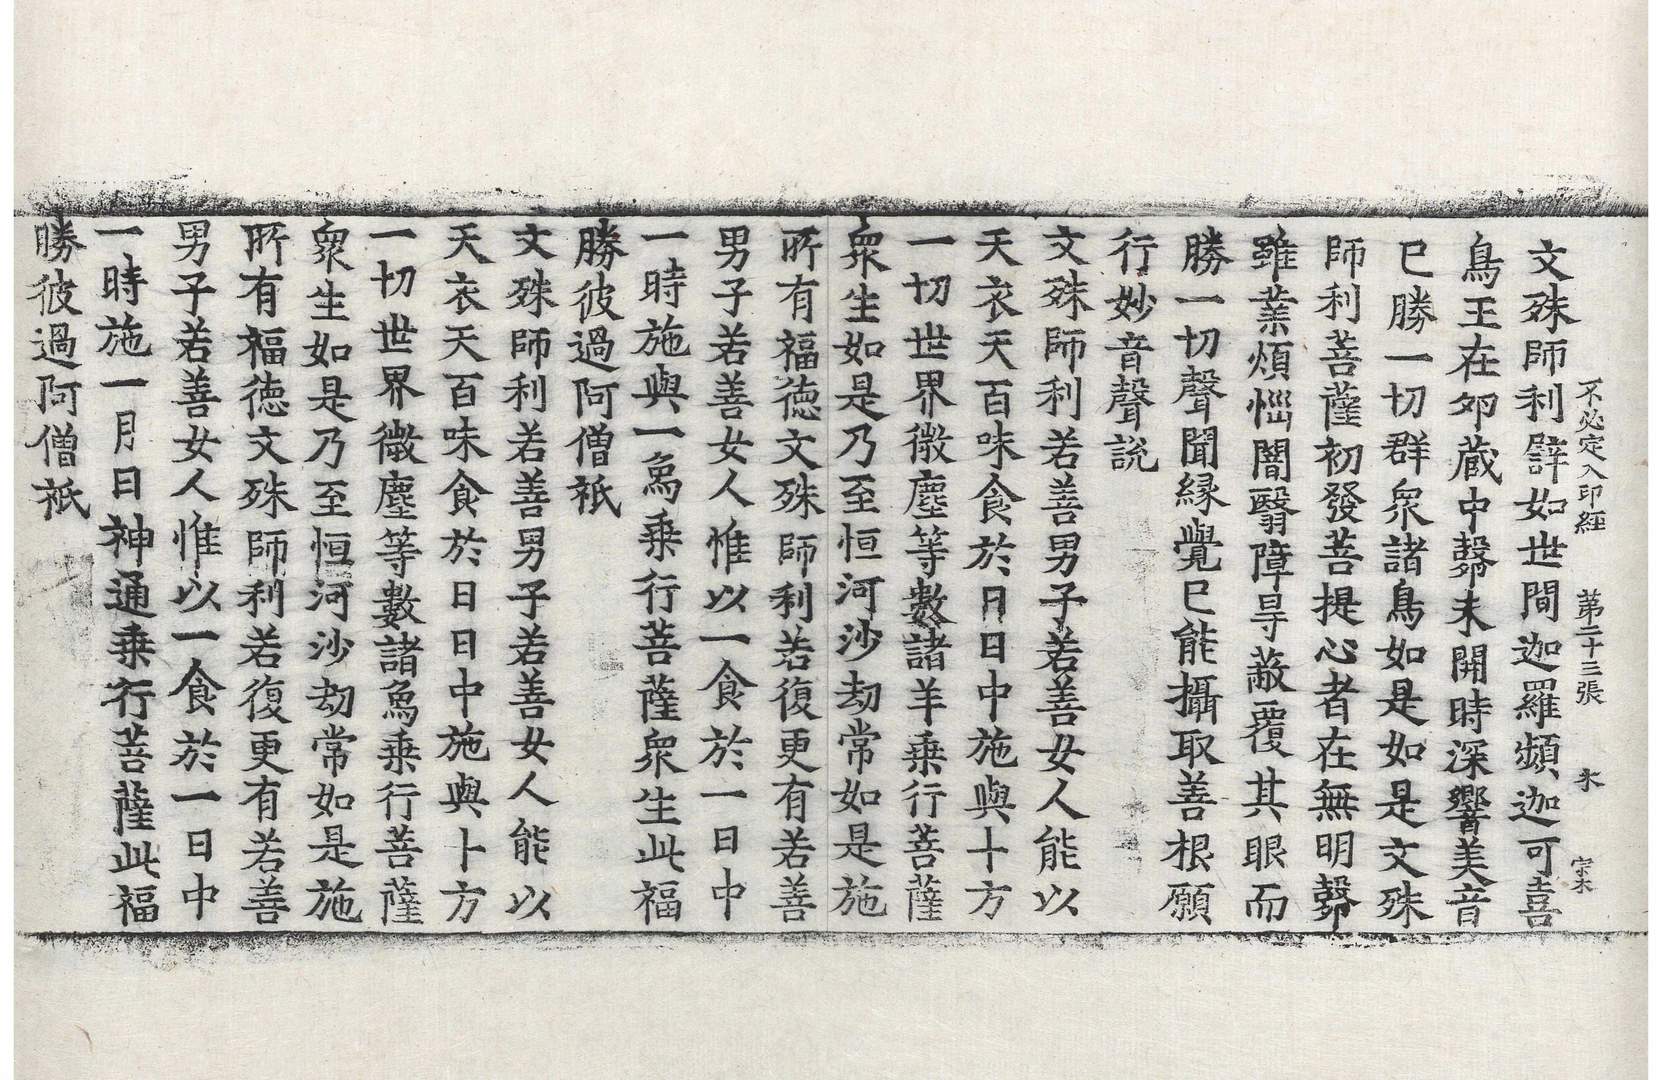 文殊師利譬如世間迦羅頻迦可喜
不必定入印經 第二十三張 木 宗木
鳥王在夘蔵中㲉未開時深響美音
已勝一切群衆諸鳥如是如是文殊
師利菩薩初發菩提心者在無明㲉
雖業煩惱闇翳障㝵蔽覆其眼而
勝一切聲聞縁覺已能攝取善根願
行妙音聲說
文殊師利若善男子若善女人能以
天衣天百味食於日日中施與十方
一切世界微塵等數諸羊乗行菩薩
衆生如是乃至恒河沙劫常如是施
所有福德文殊師利若復更有若善
男子若善女人惟以一食於一日中
一時施與一象乗行菩薩衆生此福
勝彼過阿僧祇
文殊師利若善男子若善女人能以
天衣天百味食於日日中施與十方
一切世界微塵等數諸象乗行菩薩
衆生如是乃至恒河沙劫常如是施
所有福德文殊師利若復更有若善
男子若善女人惟以一食於一日中
一時施一月日神通乗行菩薩此福
勝彼過阿僧祇